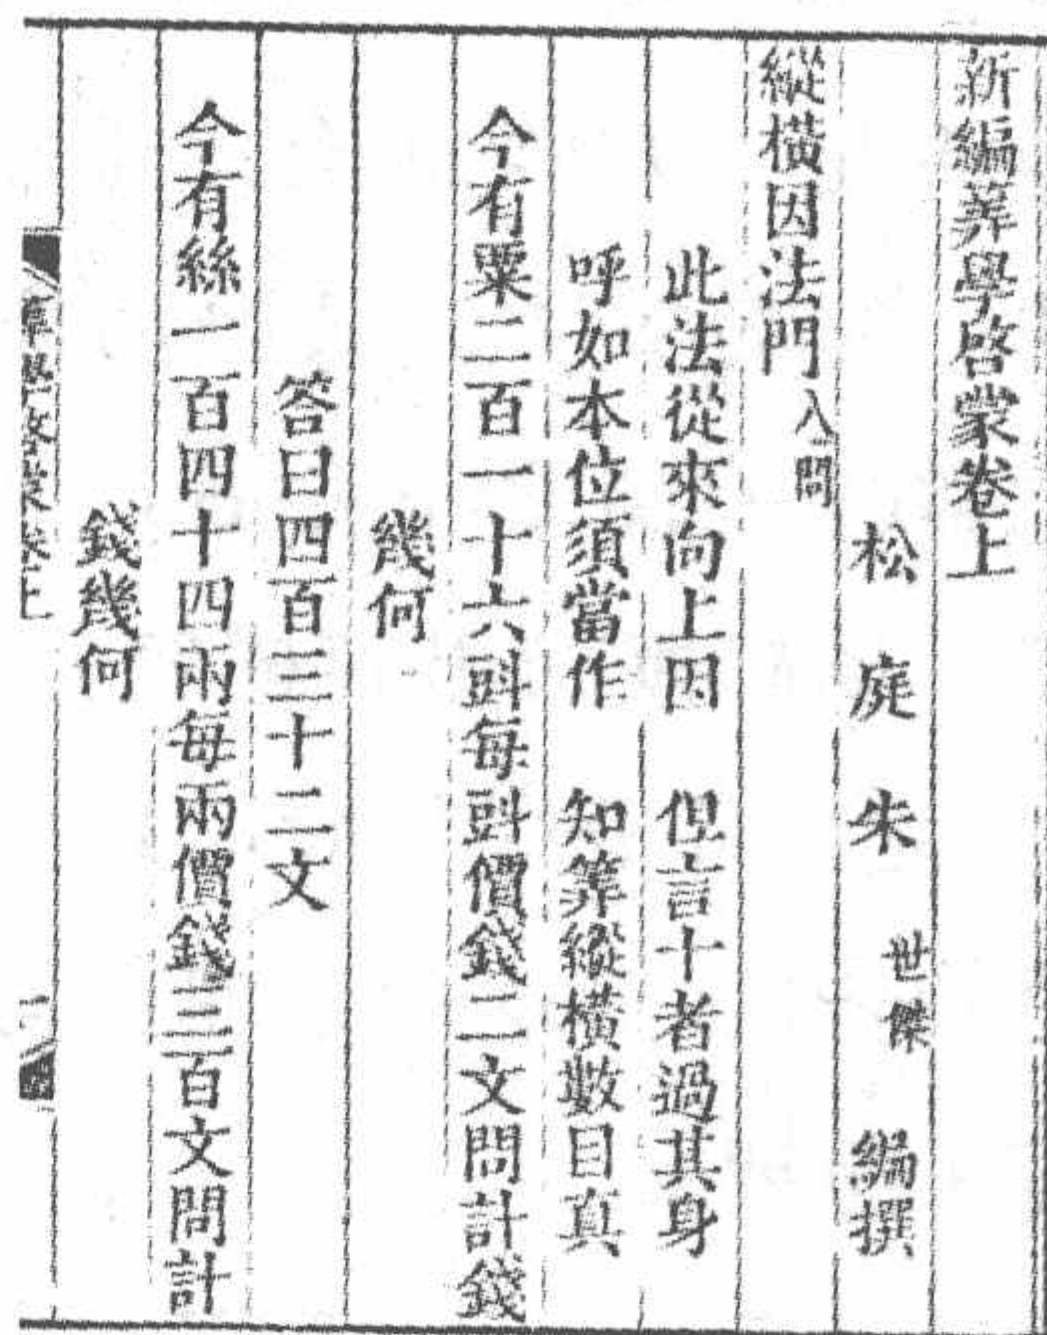 新編筭學啓蒙卷上
松庭朱世傑編撰
縱橫因法門八問
此法從來向上因　但言十者過其身
呼如本位須當作　知筭縱橫數目真
今有粟二百一十六㪷每㪷價錢二文問計錢
幾何
答曰四百三十二文
今有絲一百四十四兩每兩價錢三百文問計
錢幾何